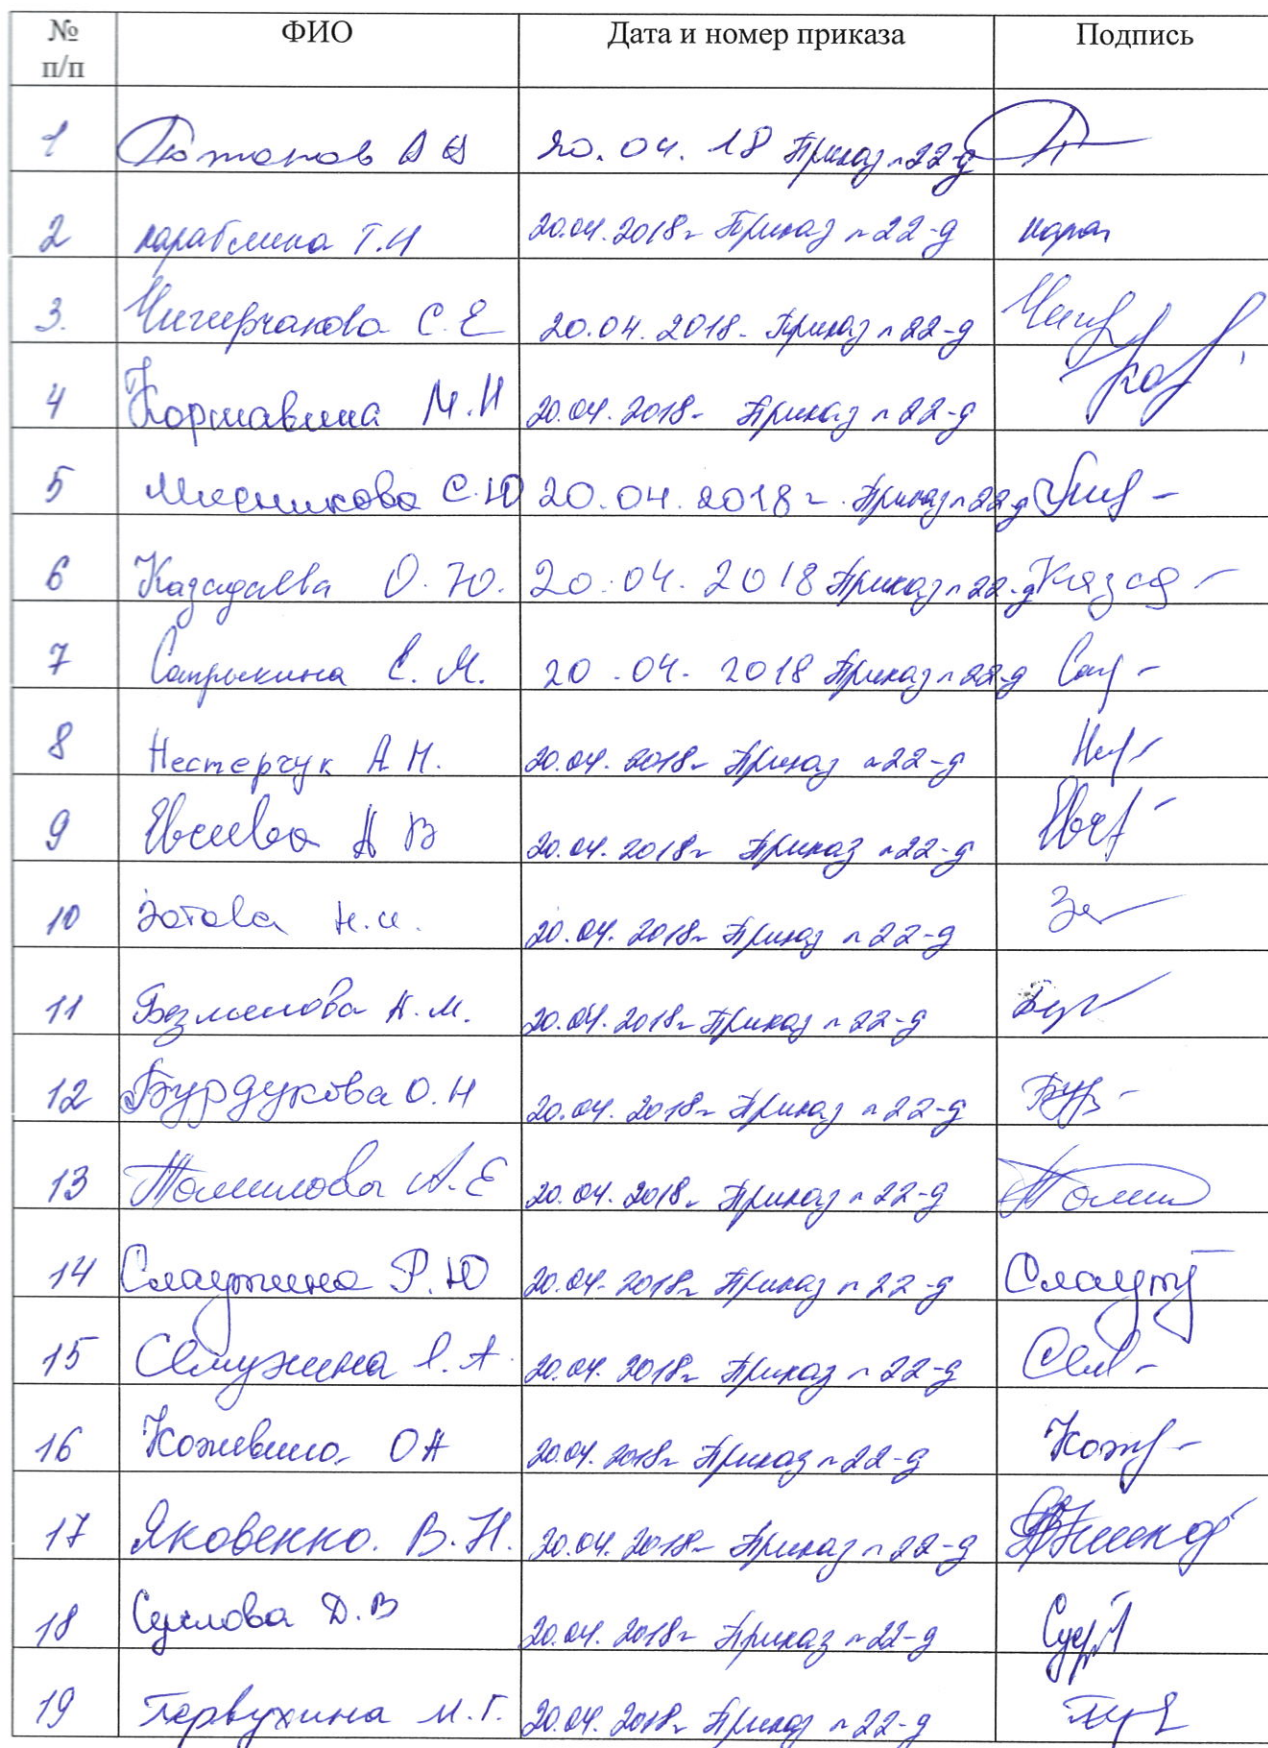 № п/п ФИО Дата и номер приказа Подпись
1 20.04.18 Приказ n22-д
2 Т.И 20.04.2018г Приказ n22-д кара
3. Чигирчакова С.Е 20.04.2018г Приказ n22-д Чиг
4 Коршавина М.Н 20.04.2018г Приказ n22-д Кор
5 Мисникова С.Ю 20.04.2018г. Приказ n22-д
6 Казадаева О.Ю. 20.04.2018 Приказ n22-д Казад
7 Сапрыкина Е.М. 20.04.2018 Приказ n22-д Сап
8 Нестерчук А.Н. 20.04.2018г Приказ n22-д
9 Евсеева А В 20.04.2018г Приказ n22-д Евс
10 Зотова Н.И. 20.04.2018г Приказ n22-д
11 Безменова А.М. 20.04.2018г Приказ n22-д
12 Бурдукова О.Н 20.04.2018г Приказ n22-д Бур
13 Томилова А.Е 20.04.2018г Приказ n22-д Томил
14 Слаутина Р.Ю 20.04.2018г Приказ n22-д Слаут
15 Семужина Е.А. 20.04.2018г Приказ n22-д Сем
16 ОА 20.04.2018г Приказ n22-д Кож
17 Яковенко. В.Н. 20.04.2018г Приказ n22-д
18 Суслова Д.В 20.04.2018г Приказ n22-д
19 Первухина М.Г. 20.04.2018г Приказ n22-д